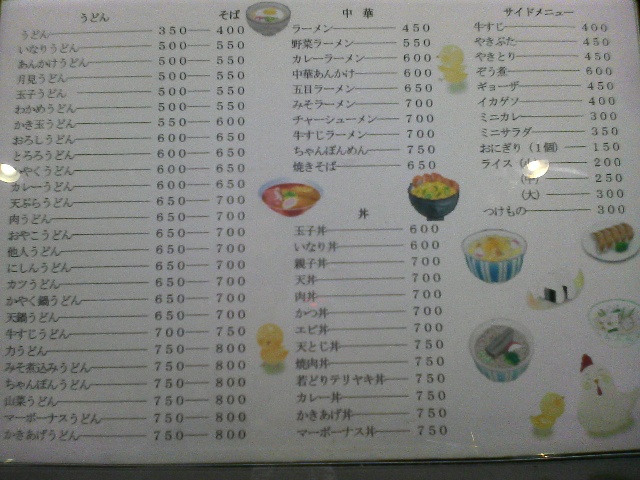 うどん そば
うどん 350 400
いなりうどん 500 550
あんかけうどん 500 550
月見うどん 500 550
玉子うどん 500 550
わかめうどん 500 550
かき玉うどん 550 600
おろしうどん 600 650
とろろうどん 600 650
やくうどん 600 650
カレーうどん 600 650
天ぷらうどん 650 700
肉うどん 650 700
おやこうどん 650 700
他人うどん 650 700
にしんうどん 650 700
カツうどん 650 700
かやく鍋うどん 650 700
天鍋うどん 650 700
牛すじうどん 700 750
力うどん 750 800
みそ煮込みうどん 750 800
ちゃんぽんうどん 750 800
山菜うどん 750 800
マーボーナスうどん 750 800
かきあげうどん 750 800
中華
ラーメン 450
野菜ラーメン 550
カレーラーメン 600
中華あんかけ 600
五目ラーメン 650
みそラーメン 700
チャーシューメン 700
牛すじラーメン 700
ちゃんぽんめん 750
焼きそば 650
丼
玉子丼 600
いなり丼 600
親子丼 700
天丼 700
肉丼 700
かつ丼 700
エビ丼 700
天とじ丼 750
焼肉丼 750
若どりテリヤキ丼 750
カレー丼 750
かきあげ丼 750
マーボーナス丼 750
サイドメニュー
牛すじ 400
やきぶた 450
やきとり 450
ぞう煮 600
ギョーザ 450
イカゲソ 400
ミニカレー 300
ミニサラダ 350
おにぎり（1個） 150
ライス（小） 200
（中） 250
（大） 300
つけもの 300